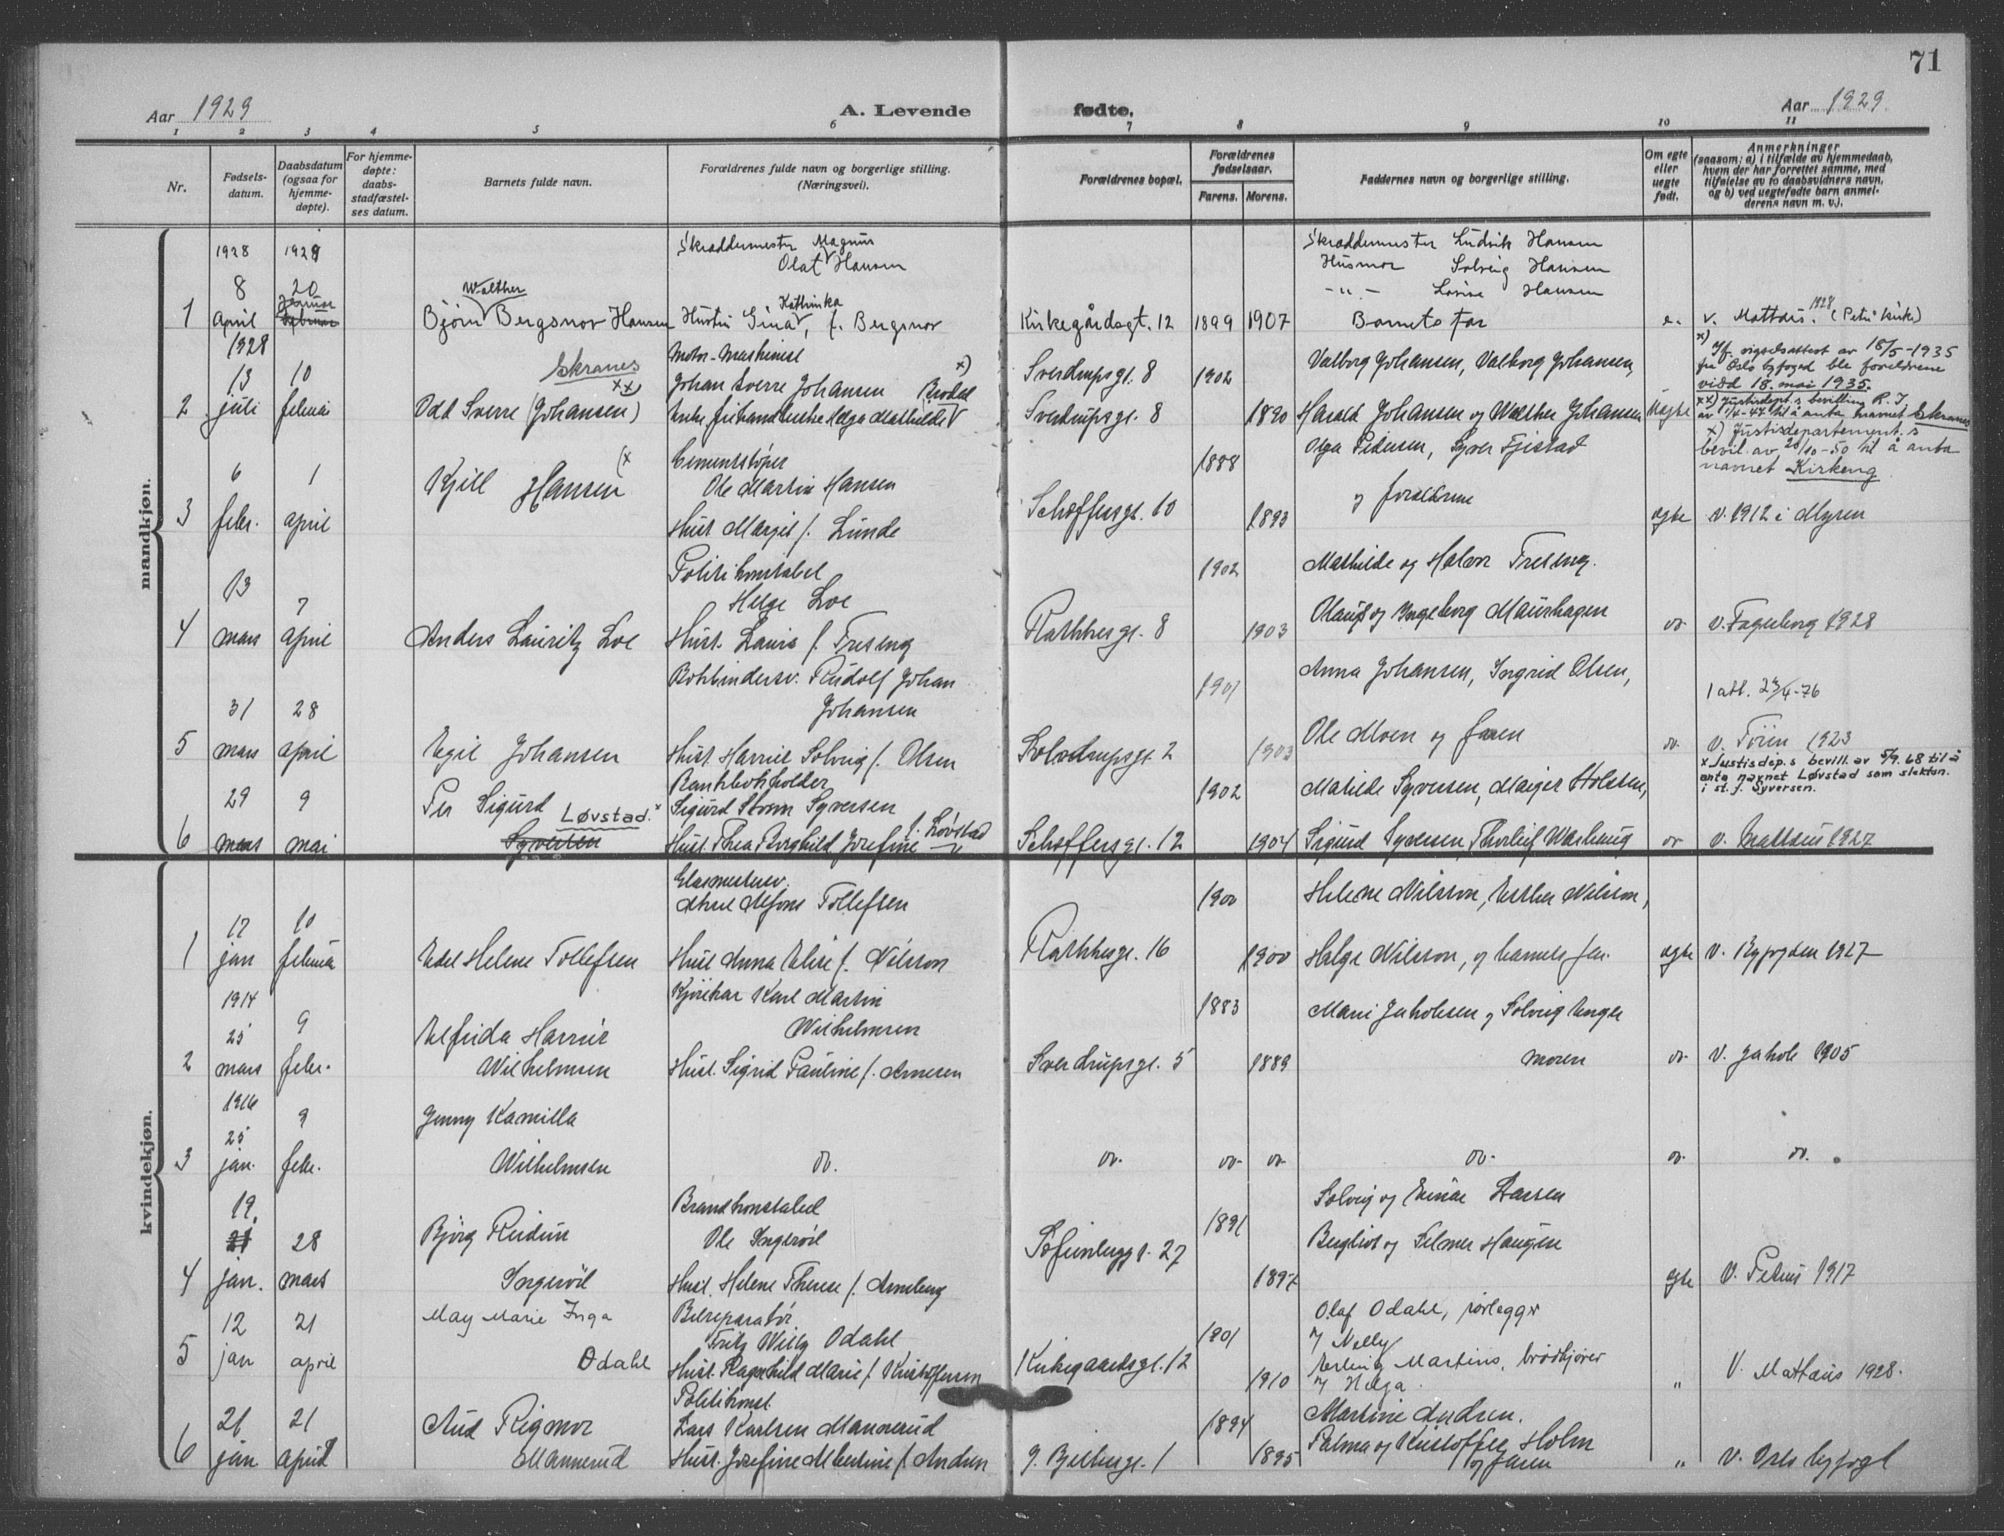 71
Aar 1929 A. Levende fødte. Aar 1929.
1 2 3 4 5 6 7 8 9 10 11
Nr.
Fødsels-
datum.
Daabsdatum
(ogsaa for
hjemme-
døpte).
For hjemme-
døpte:
daabs-
stadfæstel-
ses datum.
Barnets fulde navn.
Forældrenes fulde navn og borgerlige stilling.
(Næringsvei).
Forældrenes bopæl.
Forældrenes
fødselsaar.
Farens. Morens.
Faddernes navn og borgerlige stilling.
Om egte
eller
uegte
født.
Anmerkninger
(saasom: a) i tilfælde av hjemmedaab,
hvem der har forrettet samme, med
tilføielse av to daabsvidners navn,
og b) ved uegtefødte barn anmel-
derens navn m. v.).
mandkjøn.
1
1928
8
April
1929
20
Januar
Februar
Walther
Bjørn Bergsnov Hansen
Skræddermester Magnus
Olaf Hansen
Kathinka
Hustru Gina, f. Bergsnov
Kirkegårdsgt. 12 1899 1907
Skræddermester Ludvik Hansen
Husmor Solveig Hansen
-"- Lovise Hansen
Barnets far
e. v. Mattæus. 1928 (Petri kirke)
2
1928
13
juli
10
februar
Ekranes
xx)
Odd Sverre (Johansen)
Motor-Maskinist
Johan Sverre Johansen x)
Enke, fru Mathilde
Sverdrupsgt. 8 1902
Sverdrupsgt. 8 1890
Valborg Johansen, Valborg Johansen,
Harald Johansen og Walther Johansen
Uegte
x) Jf. vigselsattest av 18/5-1935
fra Oslo byfoged ble foreldrene
viëd 18. mai 1935.
xx) Justisdept.s bevilling R. J.
av 1/4-47 til å anta navnet Ekranes
3
6
febr.
1
april
Kjell Hansen (x
Cementstøper
Ole Martin Hansen
Hust Margit f. Lunde
Schæffersgt. 10 1888 1893
Olga Pedersen, Syver Fjistad
og foreldrene
x) Justisdepartement.s
bevil. av 20/10-50 til å anta
navnet Kirkeng
egte v. 1912 i Myren
4
13
mars
7
april
Anders Lauritz Loe
Politikonstabel
Helge Loe
Hust. Laura f. Treseng
Rathkesgt. 8 1902 1903
Mathilde og Halvor Treseng.
Olaus og Ingeborg Maurhagen
do v. Fagerborg 1928
5
31
mars
28
april
Egil Johansen
Bokbindersv. Rudolf Johan
Johansen
Hust. Harriet Solveig f. Olsen
Sverdrupsgt. 2 1901 1903
Anna Johansen, Ingrid Olsen,
Ole Moen og faren
do.
1 att. 23/4-76
v. Tøien 1923
6
29
mars
9
mai
Per Sigurd Løvstad. x
Syversen
Bankbokholder
Sigurd Storm Syversen
Hust. Thea Borghild Josefine f. Løvstad
Schæffersgt. 12 1902 1904
Matilde Syversen, Margot Holsten,
Sigurd Syversen, Thorleif
do
x Justisdep.s bevill. av 5/9.68 til å
anta navnet Løvstad som slektsn.
i st. f. Syversen.
v. Mattæus 1927
kvindekjøn.
1
17
jan
10
februar
Edel Helene Tollefsen
Glasmestersv.
Alfons Tollefsen
Hust Anna Elise f. Nilsson
Rathkesgt. 16 1900 1900
Helene Nilsson, Esther Nilsson,
Helge Nilsson, og barnets far.
egte v. Byfogden 1927
2
1914
25
mars
9
febr.
Elfrida Harriet
Wilhelmsen
Kjørekar Karl Martin
Wilhelmsen
Hust. Sigrid Pauline f. Arnesen
Sverdrupsgt. 5 1883 1889
Marie Jakobsen og Solveig Unger
moren
do v. Jakob 1905
3
1916
25
jan.
9
febr.
Jenny Kamilla
Wilhelmsen
do. do. do. do. do. do do.
4
19
21
jan.
28
mars
Bjørg Reidun
Ingerøil
Brandkonstabel
Ole Ingerøil
Hust. Helene Therese f. Arneberg
Sofienberggt. 27 1891 1897
Solveig og Einar Larsen
Bergliot og Selmer Haugen
egte v. Petrus 1917
5
12
jan
21
april
May Marie Inga
Odahl
Bilreparatør
Fritz Willy Odahl
Hust. Ragnhild Marie f. Kristoffersen
Kirkegaardsgt. 12 1901 1910
Olaf Odahl, rørlegger
og Nelly
Erling Martins, brødkjører
og Helga.
" v. Mattæus 1928.
6
26
jan
21
april
Aud Rigmor
Mannerud
Politikonst.
Lars Karlsen Mannerud
Hust. Josefine Albertine f. Andsen
G. Bjelkesgt. 1 1894 1895
Martine Andsen.
Palma og Kristoffer Holm
og faren
" v. Oslo byfogt